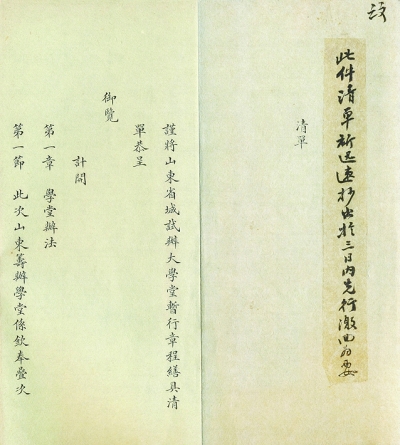 此件清單祈迅速抄出於三日內先行繳回為要
清單
謹將山東省城試辦大學堂暫行章程繕具清
單恭呈
御覽
計開
第一章 學堂辦法
第一節 此次山東籌辦學堂係欽奉疊次